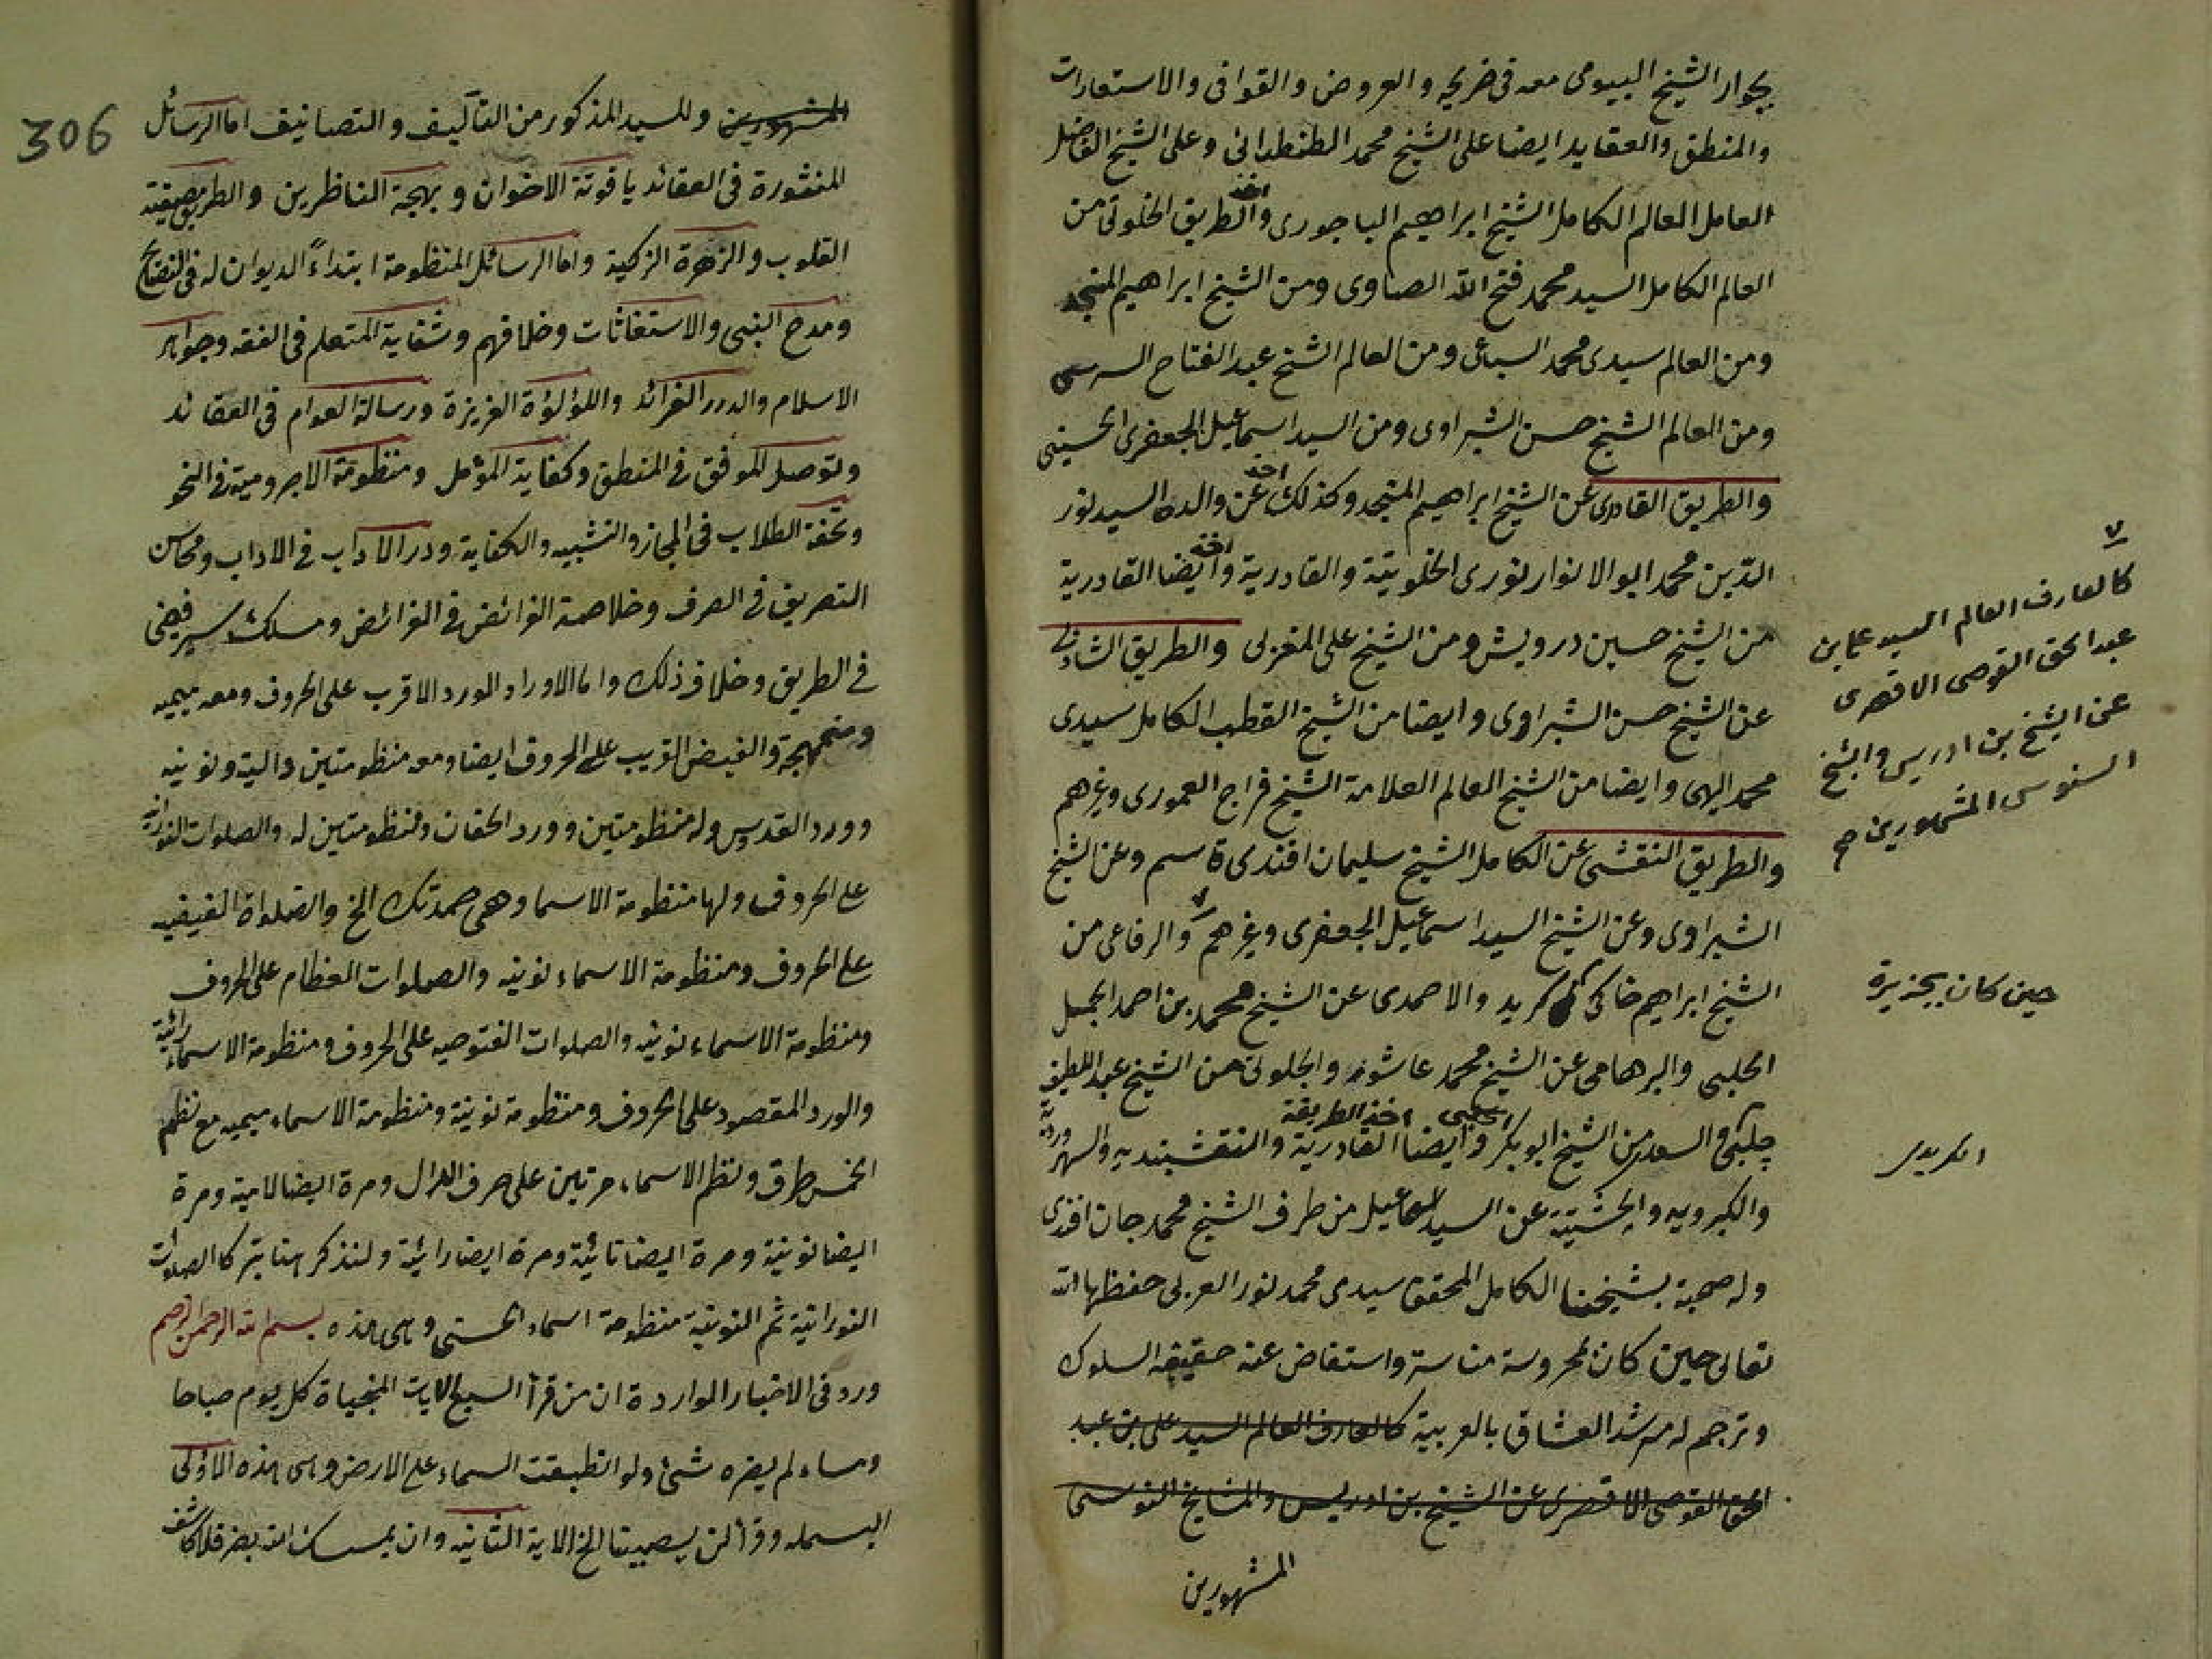 بجوار الشيخ البيومى معه فى ضريحه والعروض والقوافى والاستعارات
والمنطق والعقايد ايضا على الشيخ محمد الطنطدائى وعلى الشيخ الفاضل
العامل العالم الكامل الشيخ ابراهيم الباجورى واخذ الطريق الخلوتى من
العالم الكامل السيد محمد فتح الله الصاوى ومن الشيخ ابراهيم المتبجد
ومن العالم سيدى محمد السباعى ومن العالم الشيخ عبد الفتاح السرسى
ومن العالم الشيخ حسن الشبراوى ومن السيد اسماعيل الجعفرى الحسينى
والطريق القادرى عن الشيخ ابراهيم المتبجد وكذلك اخذ عن والده السيد نور
الدين محمد ابو الانوار نورى الخلوتية والقادرية واخذ ايضا القادرية
من الشيخ حسين درويش ومن الشيخ على المغربى والطريق الشاذلى
عن الشيخ حسن الشبراوى وايضا من الشيخ القطب الكامل سيدى
محمد البهى وايضا من الشيخ العالم العلامة الشيخ فراج العمورى وغيرهم
والطريق النقشى عن الكامل الشيخ سليمان افندى قاسم وعن الشيخ
الشبراوى وعن الشيخ السيد اسماعيل الجعفرى وغيرهم ٧ والرفاعى من
الشيخ ابراهيم خاكى كريد والاحمدى عن الشيخ محمد بن احمد الجمل
الحلبى والبرهامى عن الشيخ محمد عاشور والجلوتى من الشيخ عبد اللطيف
چلبى والسعدى من الشيخ ابو بكر وايضا اخذ الطريقة القادرية والنقشبنديه والسهروردية
والكبرويه والچشتية عن السيد اسماعيل من طرف الشيخ محمد جان افندى
وله صحبة بشيخنا الكامل المحقق سيدى محمد نور العربى حفظها الله
تعالى حين كان بمحروسة مناستر واستفاض عنه حقيقه السلوك
وترجم له مرشد العشاق بالعربية كالعارف العالم السيد على بن عبد
الحق القوصى الاقصرى عن الشيخ بن ادريس والمشايخ السنوسى
المشهورين
٧
كالعارف العالم السيد على بن
عبد الحق القوصى الاقصرى
عن الشيخ بن ادريس والشيخ
السنوسى المشهورين صح
حين كان بجزيرة
الكريدى
306
المشهورين وللسيد المذكور من التآليف والتصانيف اما الرسائل
المنثورة فى العقائد ياقوتة الاخوان وبهجة الناظرين والطريق
القلوب والزهرة الزكية واما الرسائل المنظومة ابتداءً الديوان له فى النصائح
ومدح النبى والاستغاثات وخلافهم وشفاية المتعلم فى الفقه وجواهر
الاسلام والدرر الفرائد واللؤلؤة العزيزة ورسالة العوام فى العقائد
وتوصل الموفق فى المنطق وكفاية المؤمل ومنظومة الاجروميه فى النحو
وتحفة الطلاب فى المجاز والتشبيه والكناية ودرر الآداب فى الاداب ومحاسن
التصريف فى الصرف وخلاصة الفرائض فى الفرائض ومسلك سير فيضى
فى الطريق وخلاف ذلك واما الاوراد الورد الاقرب على الحروف ومعه ميميه
والفيض القريب على الحروف ايضا ومعه منظومتين دالية ونونيه
وورد القدوس وله منظومتين وورد الحقان ومنظومتين له والصلوات النورانية
على الحروف ولها منظومة الاسما وهى حمدتك الخ والصلواة الفيضيه
على الحروف ومنظومة الاسماء نونيه والصلوات العظام على الحروف
ومنظومة الاسماء نونيه والصلوات الفتوحيه على الحروف ومنظومة الاسماء رائية
والورد المقصود على الحروف ومنظومة نونية ومنظومة الاسماء ميميه مع نظم
الخمس طرق ونظم الاسماء مرتين على حرف الدال ومرة ايضا لامية ومرة
ايضا نونية ومرة ايضا تائية ومرة ايضا رائية ولنذكر هنا تبركا الصلوات
النورانية ثم النونية منظومة اسماء الحسنى وهى هذه بسم الله الرحمن الرحيم
ورد فى الاخبار الواردة ان من قرأ السبع الايات المنجياة كل يوم صباحا
ومساء لم يضره شئ ولو انطبقت السماء على الارض وهى هذه الاولى
البسمله وقرأ لن يصيبنا الخ الاية الثانيه وان يمسسك الله بضر فلا كاشف